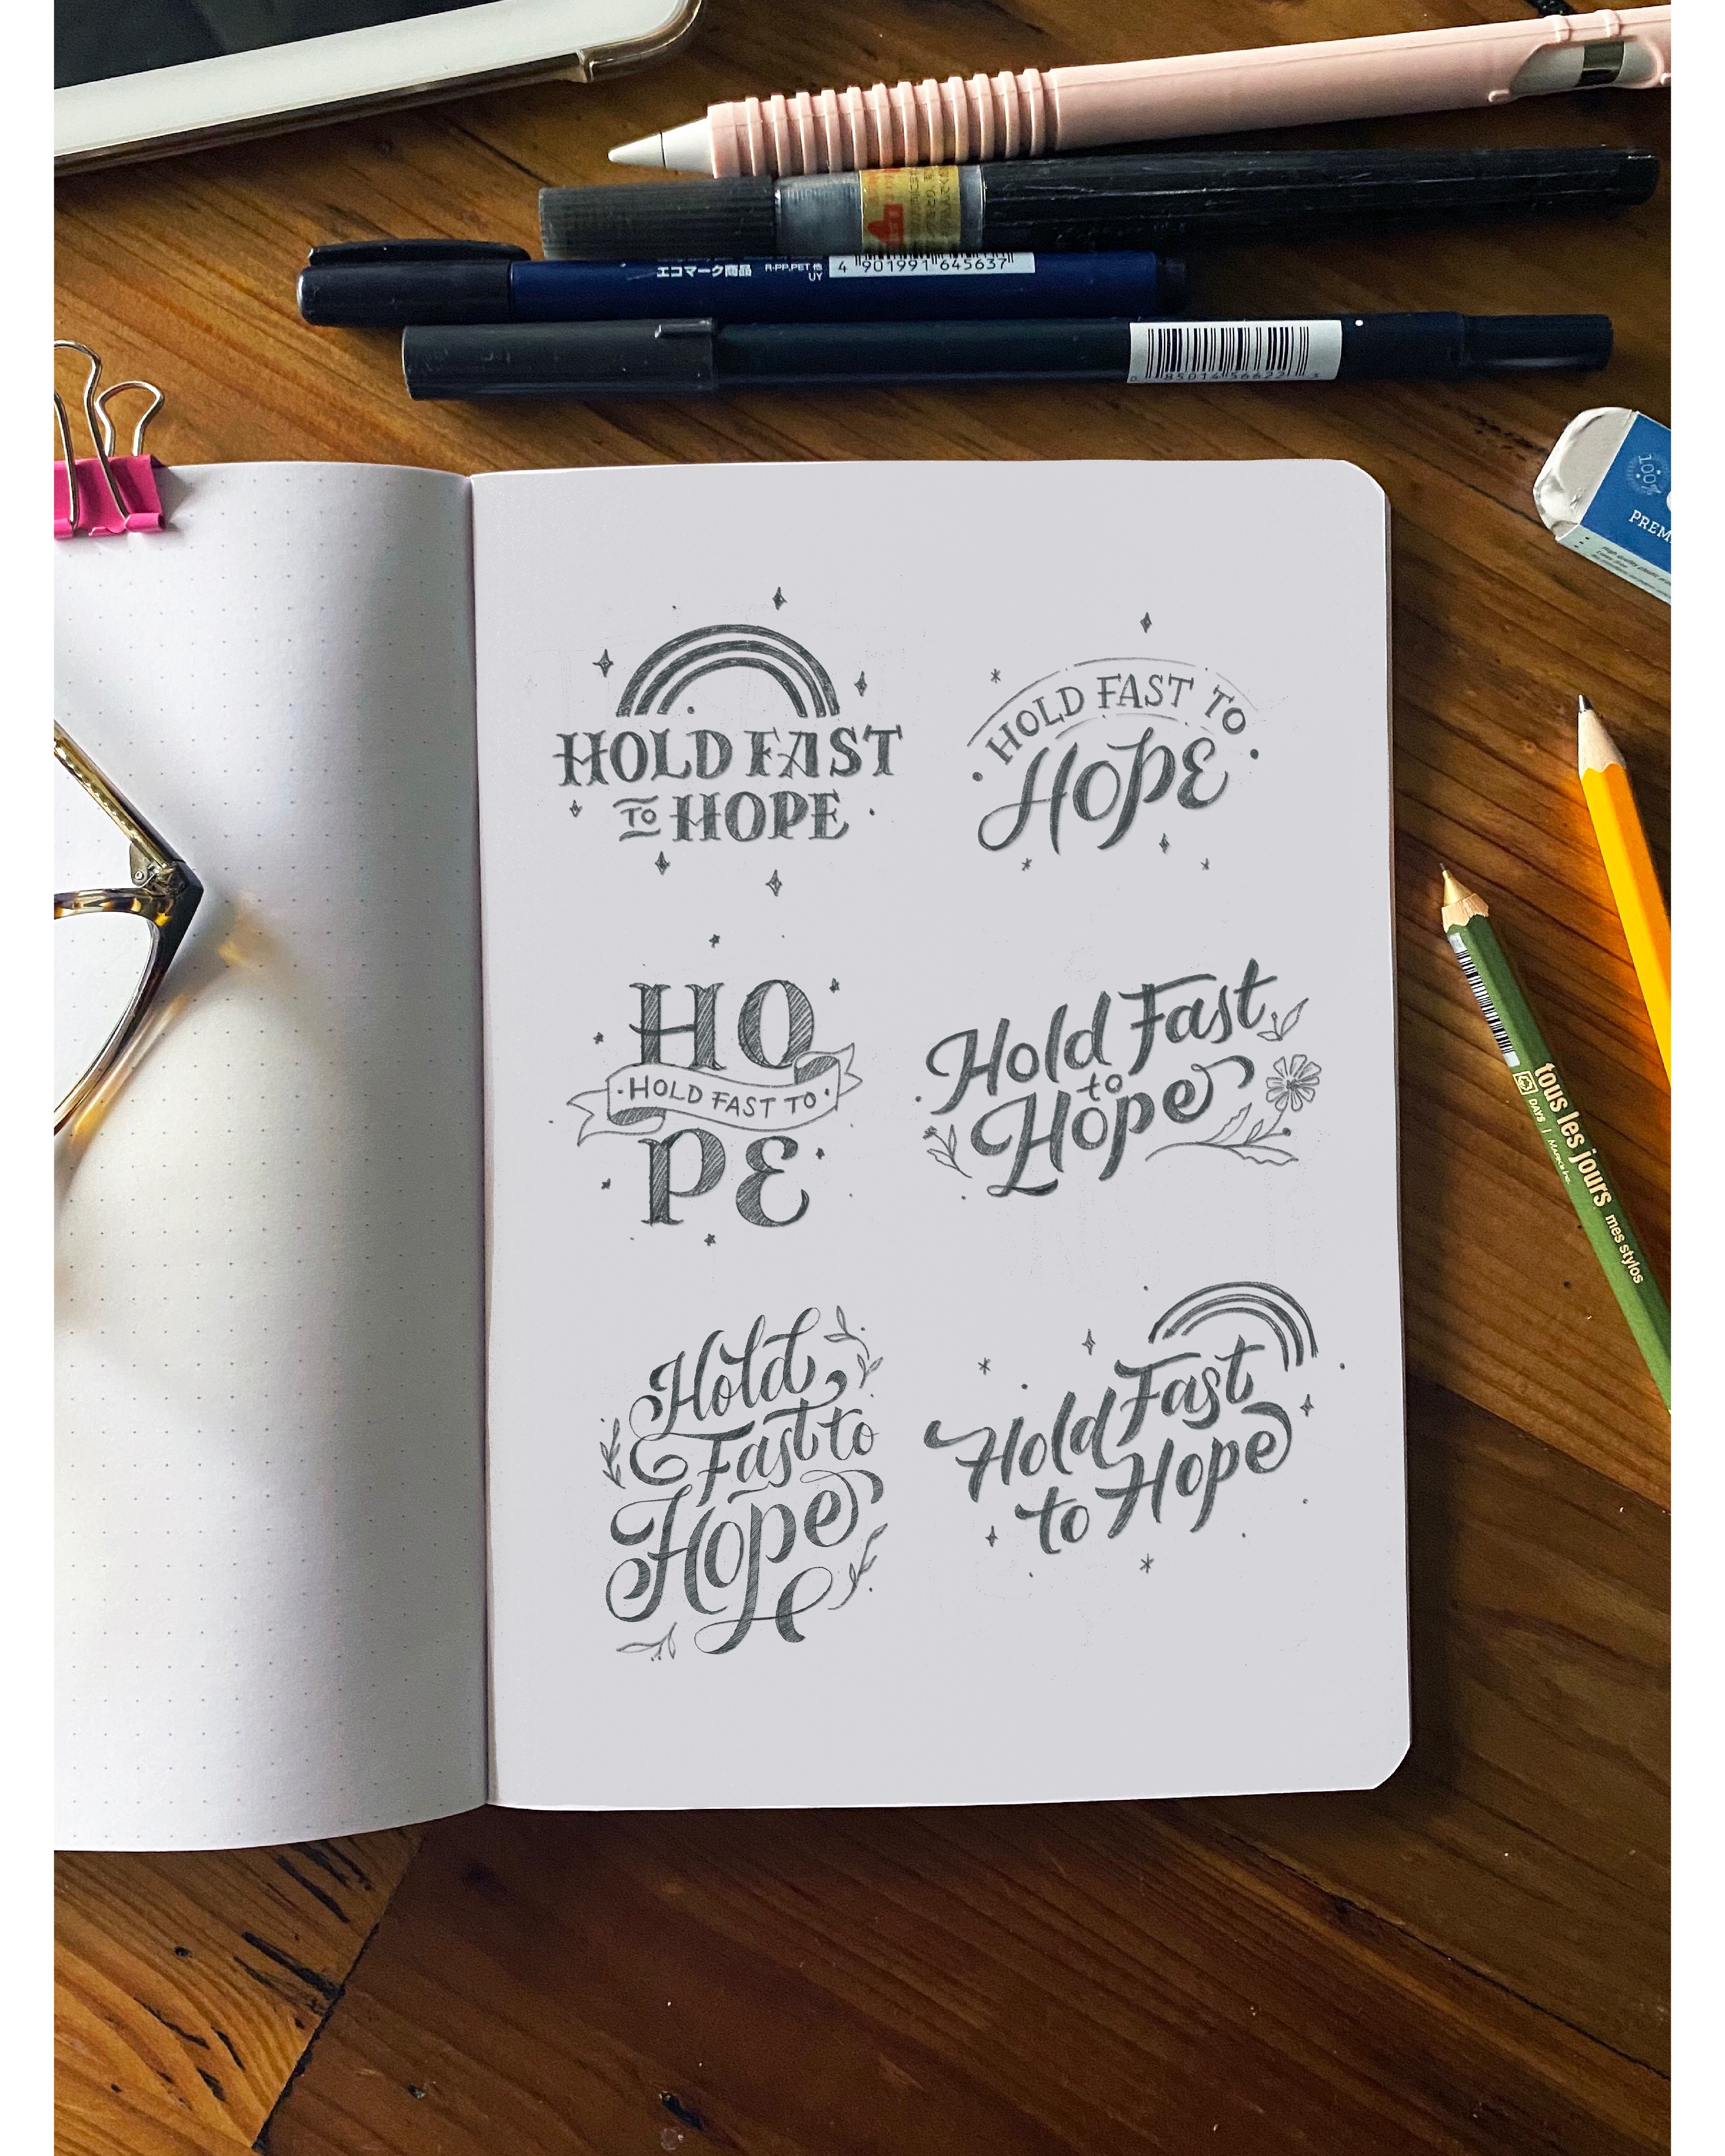 エコマーク商品
R-PP,PET 他
UY
4 901991 645637
100%
PREM
HOLD FAST
TO HOPE
HOLD FAST TO
HOPE
HO
HOLD FAST TO
PE
Hold Fast
to
Hope
Hold
Fast to
Hope
Hold Fast
to Hope
tous les jours mes stylos
DAYS